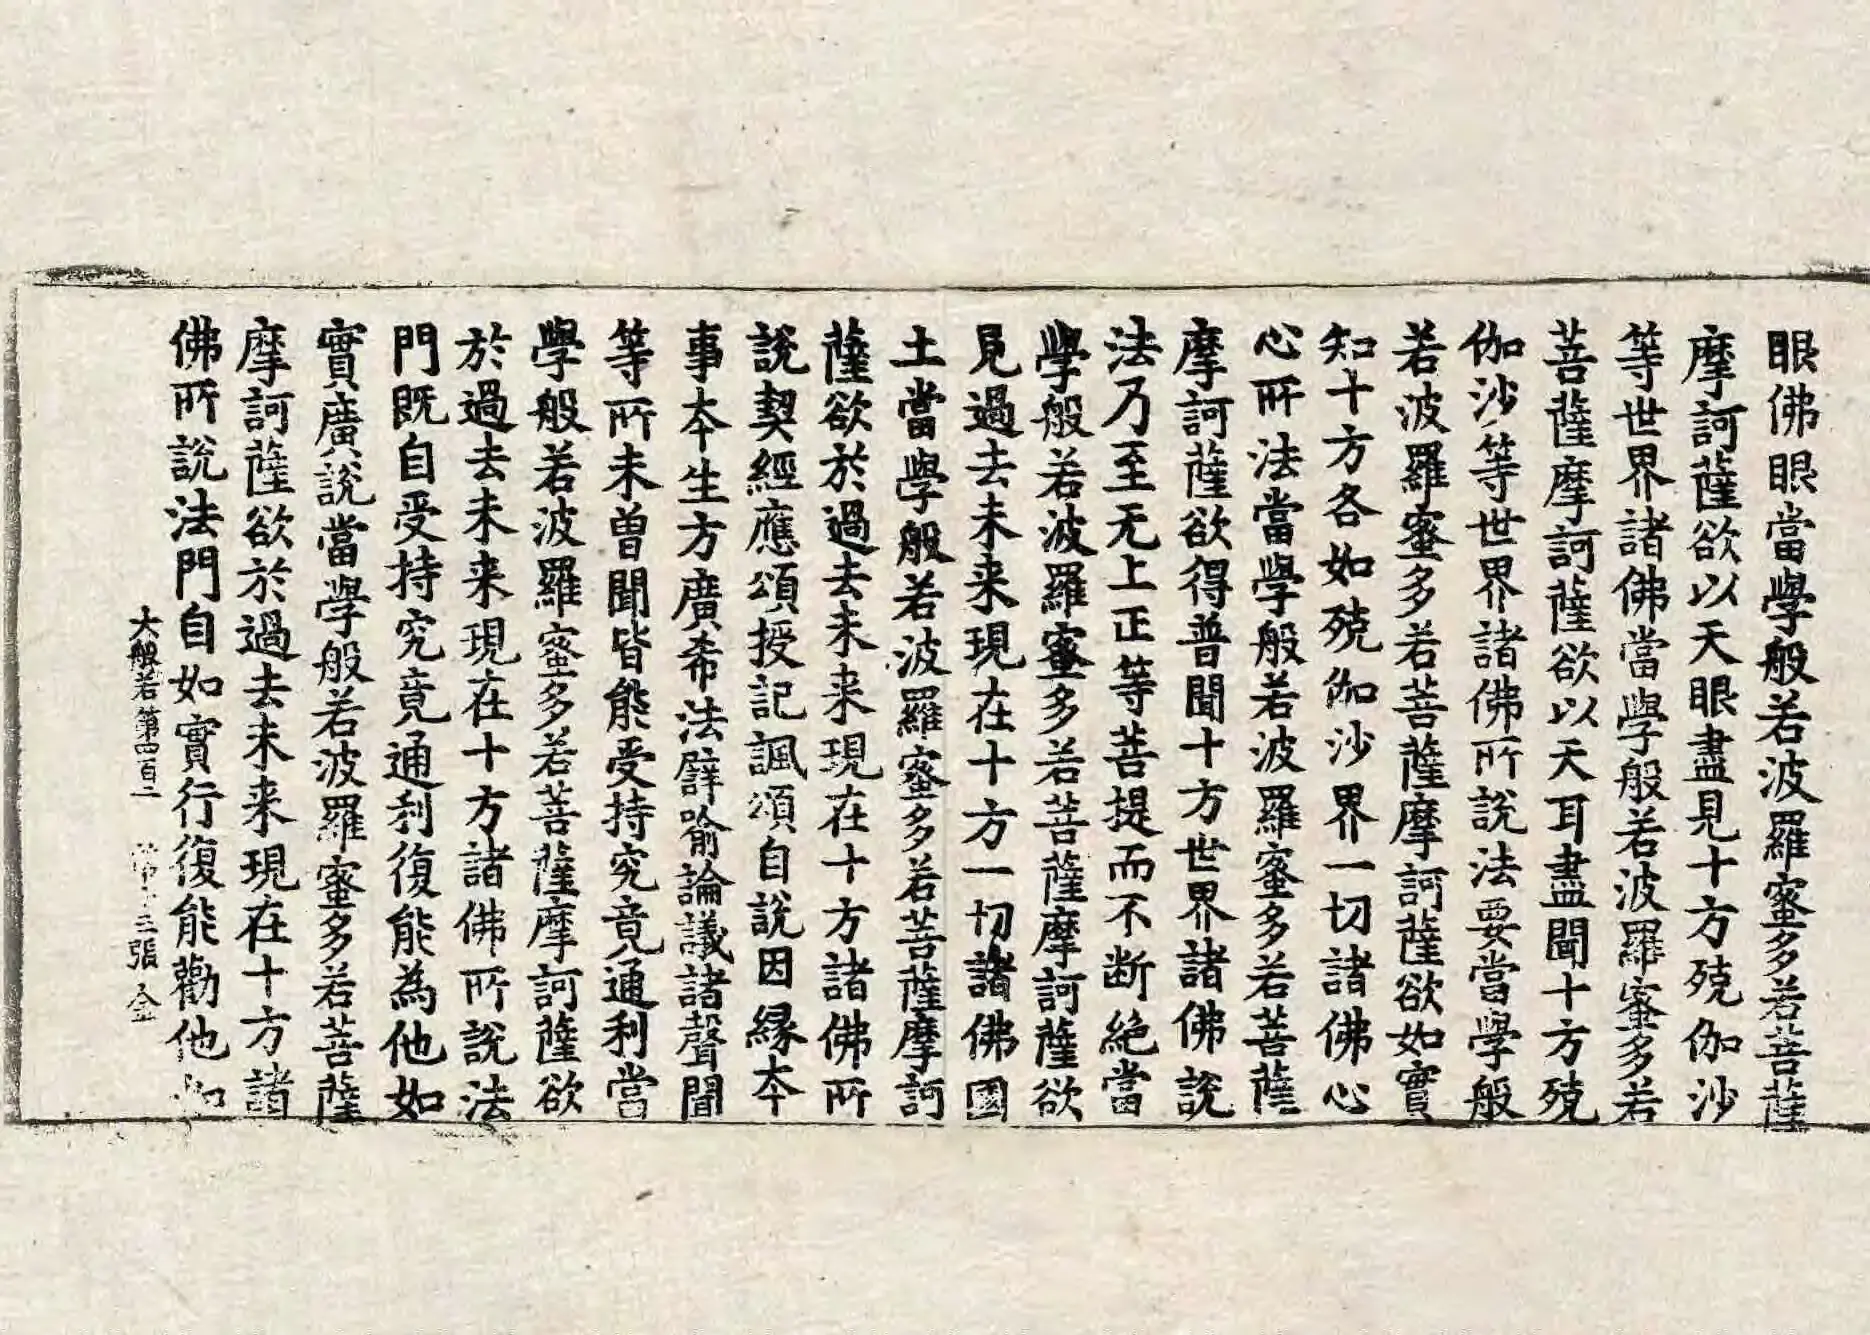 眼佛眼當學般若波羅蜜多若菩薩
摩訶薩欲以天眼盡見十方殑伽沙
等世界諸佛當學般若波羅蜜多若
菩薩摩訶薩欲以天耳盡聞十方殑
伽沙等世界諸佛所說法要當學般
若波羅蜜多若菩薩摩訶薩欲如實
知十方各如殑伽沙界一切諸佛心
心所法當學般若波羅蜜多若菩薩
摩訶薩欲得普聞十方世界諸佛說
法乃至无上正等菩提而不断絶當
學般若波羅蜜多若菩薩摩訶薩欲
見過去未来現在十方一切諸佛國
土當學般若波羅蜜多若菩薩摩訶
薩欲於過去未来現在十方諸佛所
說契經應頌授記諷頌自說因緣夲
事夲生方廣希法譬喻論議諸聲聞
等所未曾聞皆能受持究竟通利當
學般若波羅蜜多若菩薩摩訶薩欲
於過去未来現在十方諸佛所說法
門既自受持究竟通利復能為他如
實廣說當學般若波羅蜜多若菩薩
摩訶薩欲於過去未来現在十方諸
佛所說法門自如實行復能勸他如
大般若第四百二 第十三張 金